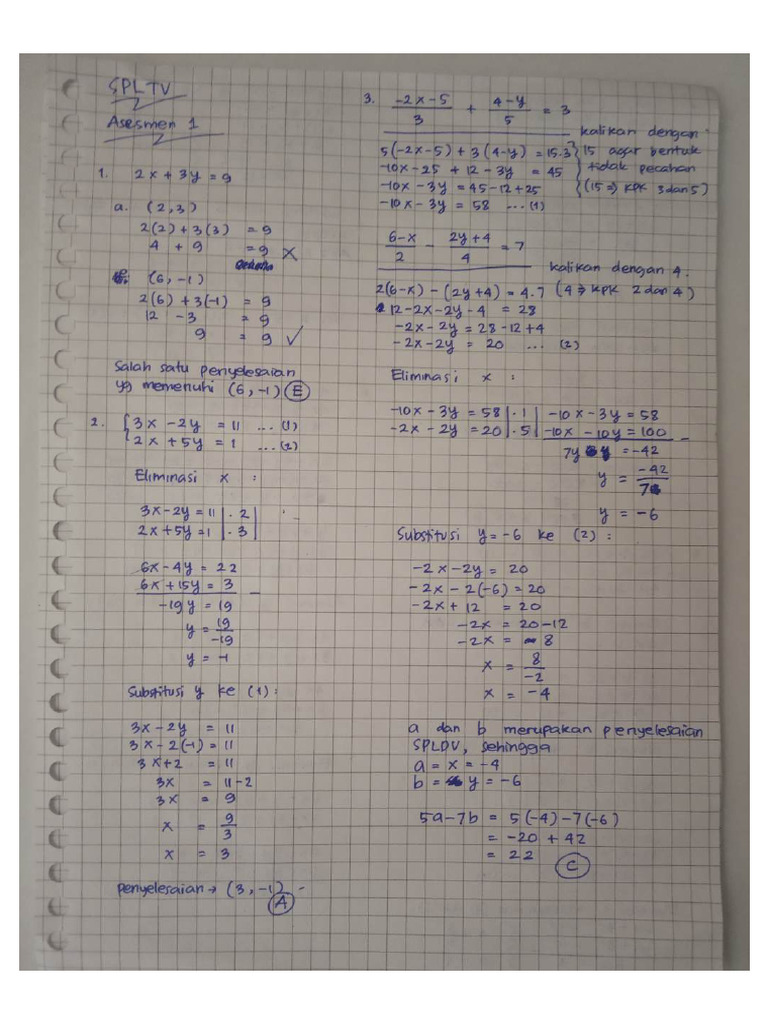 SPLTV
Asesmen 1
1. 2x + 3y = 9
a. (2,3)
2(2) + 3(3) = 9
4 + 9 = 9 X
(6, -1)
2(6) + 3(-1) = 9
12 - 3 = 9
9 = 9 ✓
Salah satu penyelesaian
yg memenuhi (6, -1) E
2. { 3x - 2y = 11 ... (1)
{ 2x + 5y = 1 ... (2)
Eliminasi x :
3x - 2y = 11 | . 2 |
2x + 5y = 1 | . 3 |
6x - 4y = 22
6x + 15y = 3 -
-19y = 19
y = 19/-19
y = -1
Substitusi y ke (1) :
3x - 2y = 11
3x - 2(-1) = 11
3x + 2 = 11
3x = 11 - 2
3x = 9
x = 9/3
x = 3
Penyelesaian → (3, -1)
A
3. (-2x-5)/3 + (4-y)/5 = 3
kalikan dengan
5(-2x-5) + 3(4-y) = 15.3 } 15 agar bentuk
-10x - 25 + 12 - 3y = 45 } tidak pecahan
-10x - 3y = 45 - 12 + 25 } (15 => KPK 3 dan 5)
-10x - 3y = 58 ... (1)
(6-x)/2 - (2y+4)/4 = 7
kalikan dengan 4.
2(6-x) - (2y+4) = 4.7 (4 => KPK 2 dan 4)
12 - 2x - 2y - 4 = 28
-2x - 2y = 28 - 12 + 4
-2x - 2y = 20 ... (2)
Eliminasi x :
-10x - 3y = 58 | . 1 | -10x - 3y = 58
-2x - 2y = 20 | . 5 | -10x - 10y = 100 -
7y = -42
y = -42/7
y = -6
Substitusi y = -6 ke (2) :
-2x - 2y = 20
-2x - 2(-6) = 20
-2x + 12 = 20
-2x = 20 - 12
-2x = 8
x = 8/-2
x = -4
a dan b merupakan penyelesaian
SPLDV, sehingga
a = x = -4
b = y = -6
5a - 7b = 5(-4) - 7(-6)
= -20 + 42
= 22
C